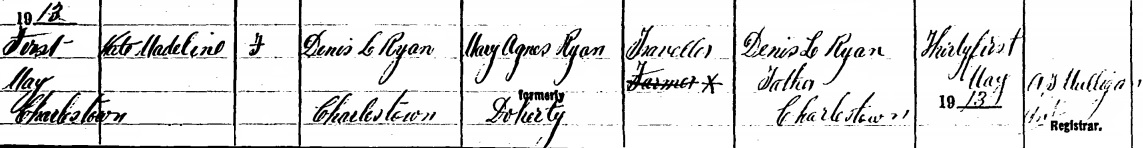 1913
First Kate Madeline F Denis L Ryan Mary Agnes Ryan Traveller Denis L Ryan Thirty first
May Farmer X Father May A J Mulligan
Charlestown Charlestown formerly Doherty Charlestown 1913
Registrar.